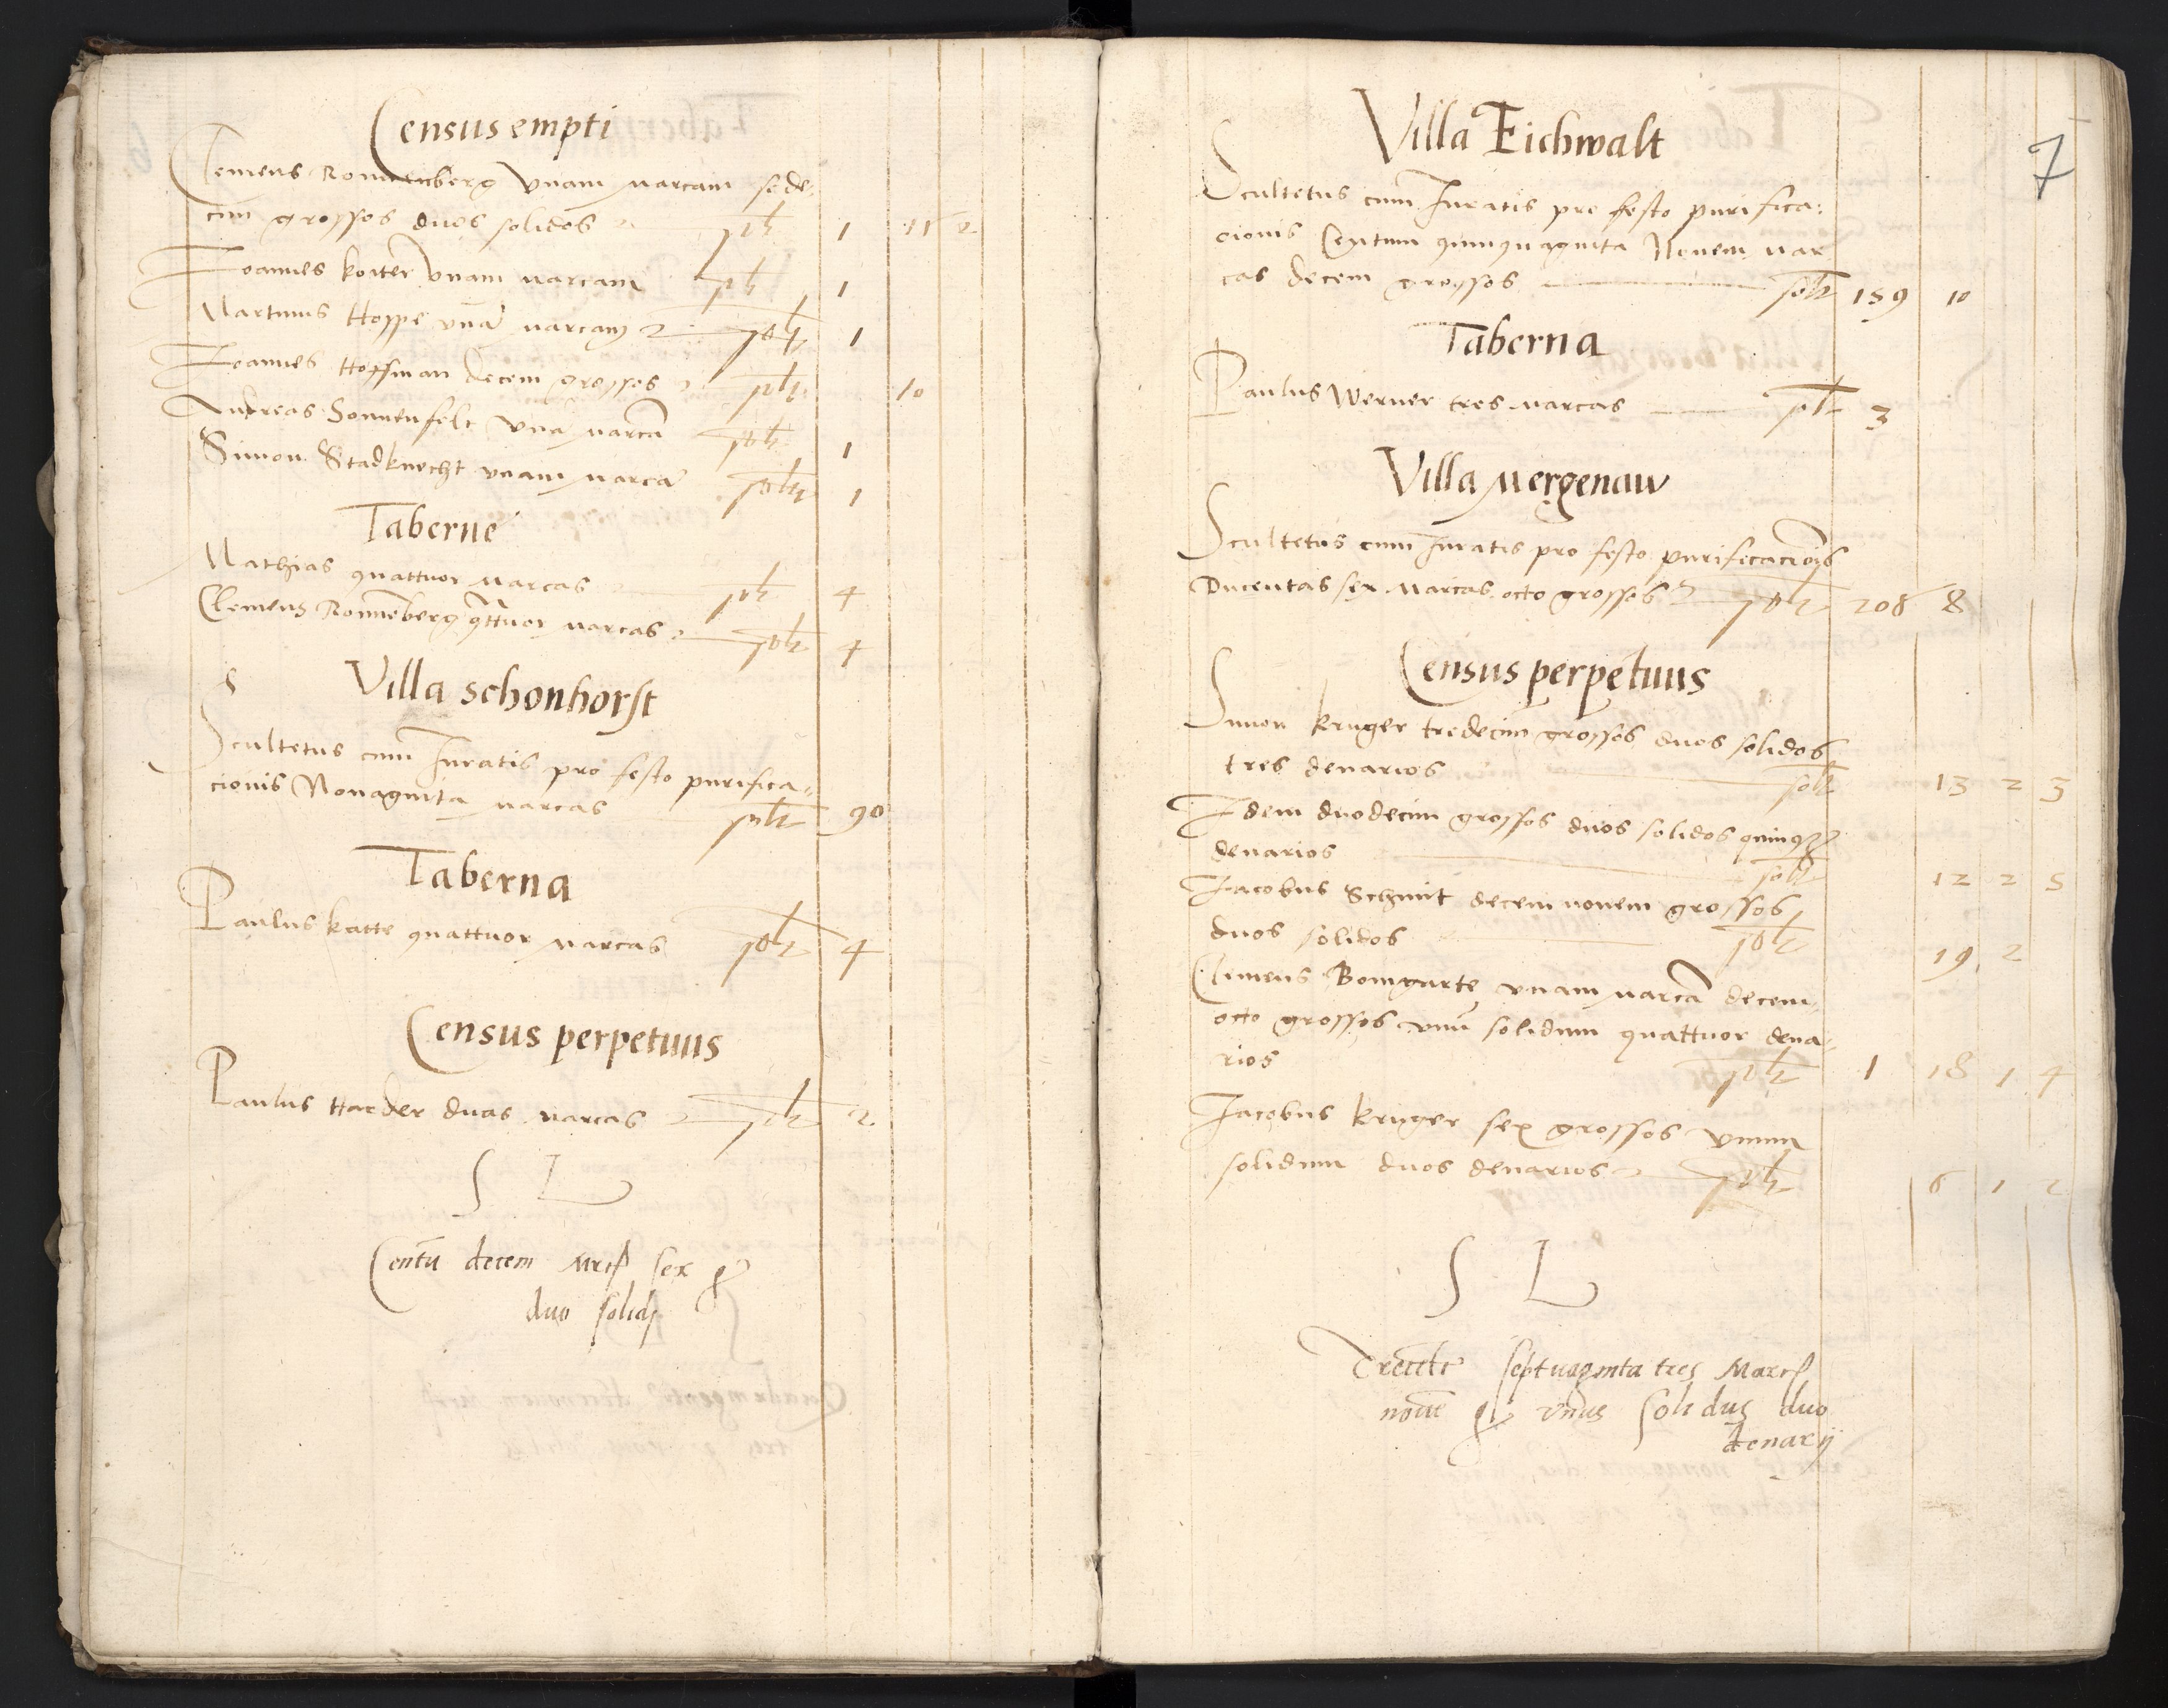 Census empti
Clemens Ronnenberg Vnam marcam sede-
cim grossos duos solidos solt 1 11 2
Joannes korter Vnam marcam solt 1
Martinus Hoppe vnā marcam solt 1
Joannes Hoffman decem grossos solt 10
Andreas Sonnenfelt Vnā marcā solt 1
Simon Stadknecht vnam marcā solt 1
Taberne
Mathias quattuor marcas solt 4
Clemens Ronnēberg qttuor marcas solt 4
Villa schonhorst
Scultetus cum Juratis pro festo purifica-
cionis Nonaginta marcas solt 90
Taberna
Paulus katte quattuor marcas solt 4
Census perpetuus
Paulus Harder duas marcas solt 2
S L
Centū decem mrc sex g
duo solid
7
Villa Eichwalt
Scultetus cum Juratis pro festo purifica-
cionis Centum quinquaginta Nonem mar
cas decem grossos solt 159 10
Taberna
Paulus Werner tres marcas solt 3
Villa Mergenaw
Scultetus cum Juratis pro festo purificacionis
Ducentas sex marcas octo grossos solt 206 8
Census perpetuus
Simon kruger tredecim grossos duos solidos
tres denarios solt 13 2 3
Idem duodecim grossos duos solidos quinqz
denarios solt 12 2 5
Jacobus Schmit decem nonem grossos
duos solidos solt 19 2
Clemens Bomgarte vnam marcā decem
octo grossos vnū solidum quattuor dena-
rios solt 1 18 1 4
Jacobus kruger sex grossos vnum
solidum duos denarios solt 6 1 2
S L
Trecēte septuaginta tres Marc
nouē g vnus solidus duo
denarij